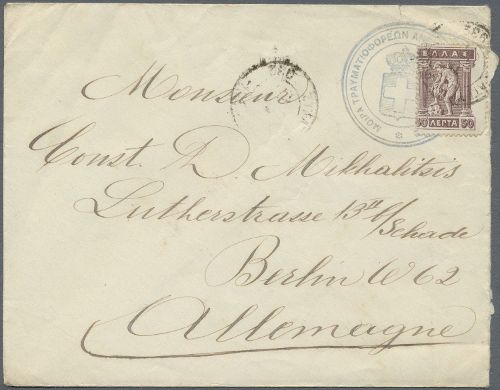 ΜΟΙΡΑ ΤΡΑΥΜΑΤΙΟΦΟΡΕΩΝ
ΕΛΛΑΣ
50 ΛΕΠΤΑ 50
Monsieur
Const. D. Mikhalitsis
Lutherstrasse 13II b/
Schade
Berlin W 62
Allemagne